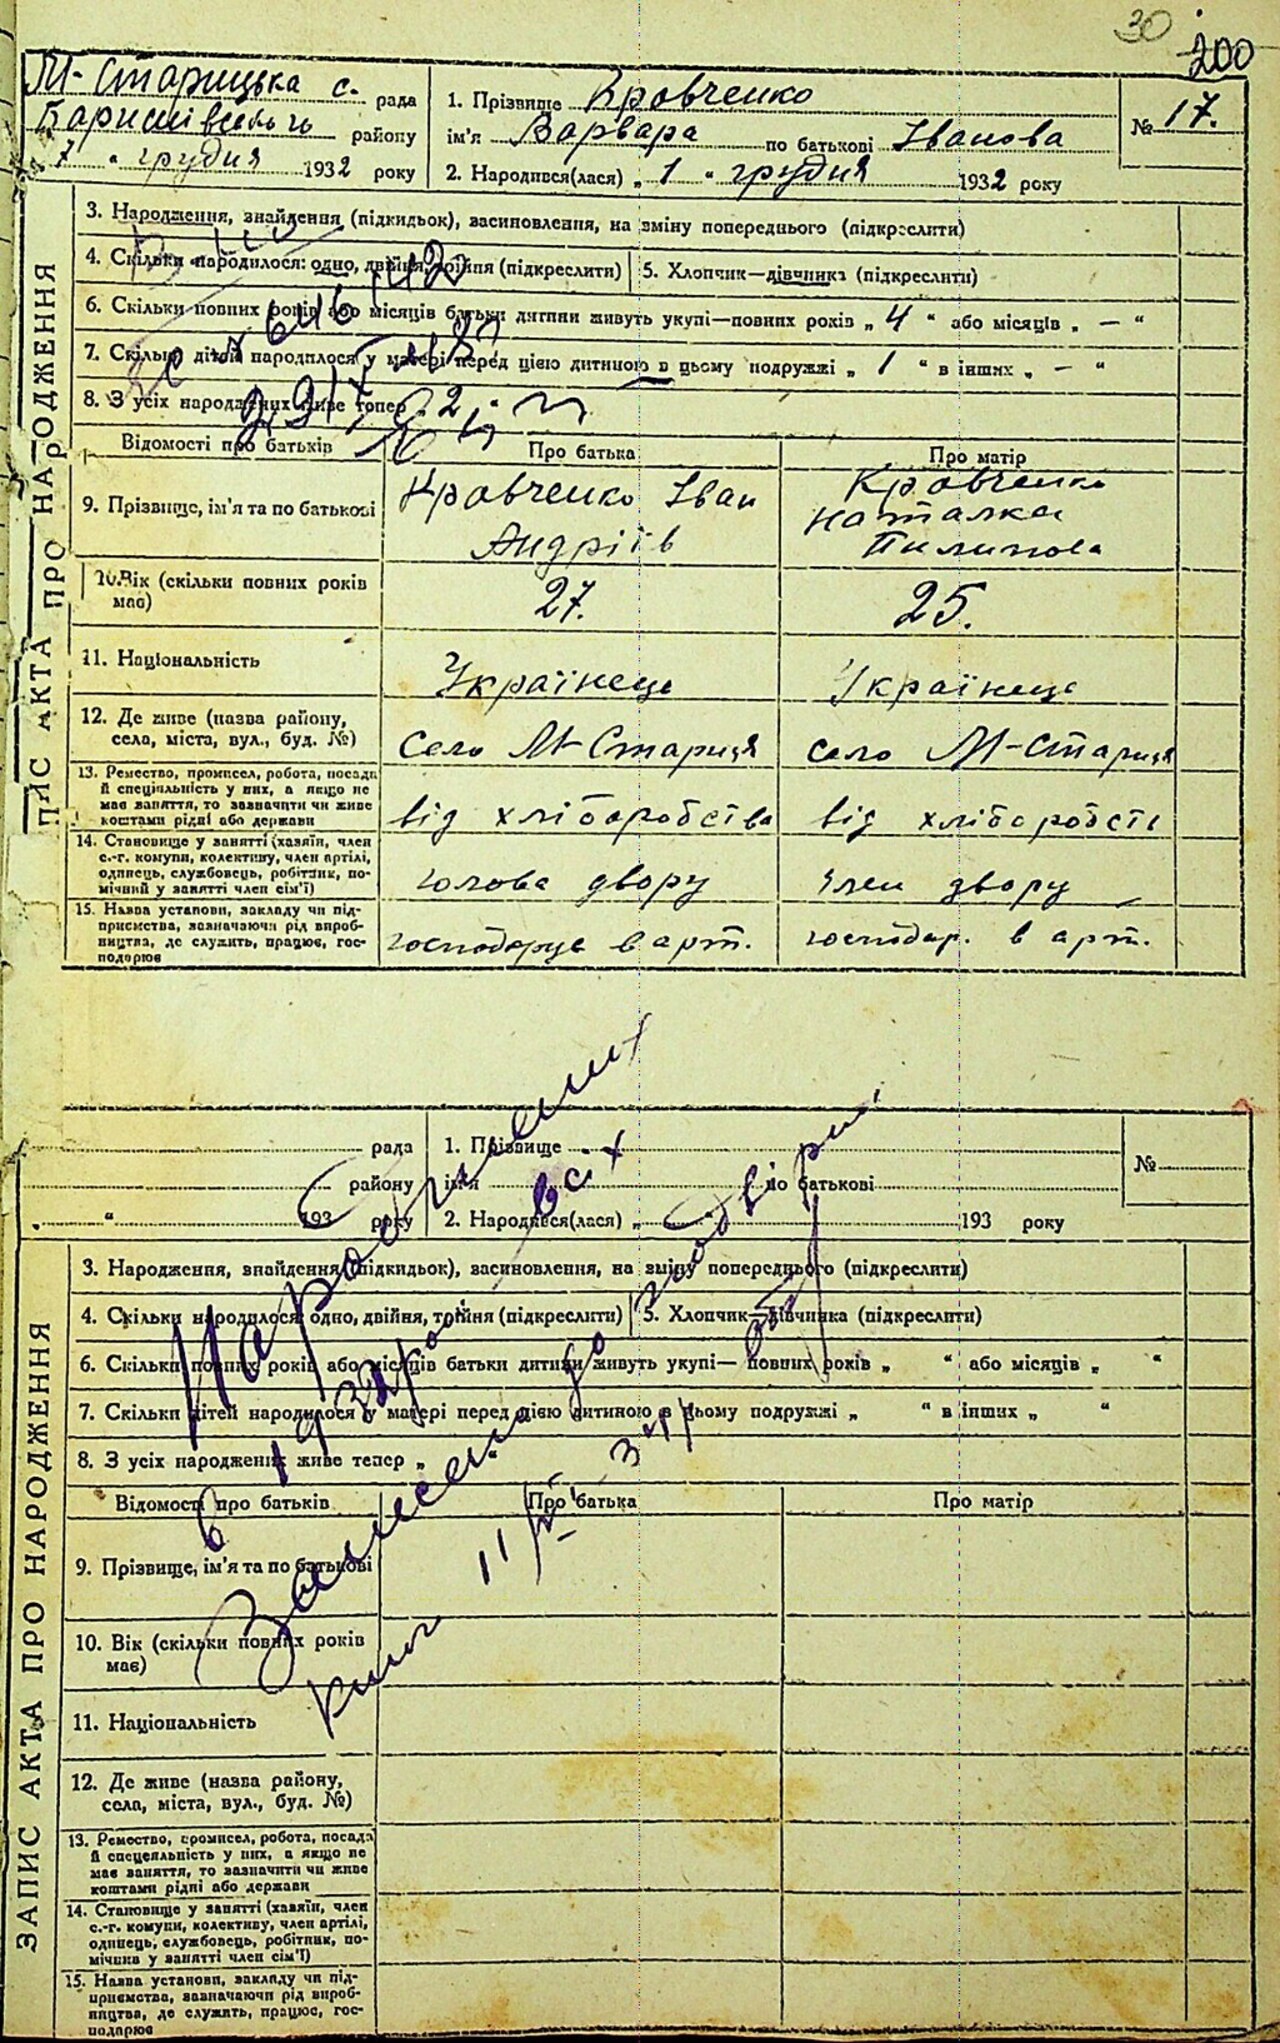 30
200
М-Старицька с. рада
Баришівського району
" 7 " грудня 1932 року
1. Прізвище Кровченко
ім'я Варвара по батькові Іванова
2. Народився(лася) „ 1 " грудня 1932 року
№ 17.
ЗАПИС АКТА ПРО НАРОДЖЕННЯ
3. Народження, знайдення (підкидьок), васиновлення, на зміну попереднього (підкреслити)
4. Скільки народилося: одно, двійня, трійня (підкреслити) 5. Хлопчик—дівчинка (підкреслити)
6. Скільки повних років або місяців батьки дитини живуть укупі—повних років „ 4 " або місяців „ — "
7. Скільки дітей народилося у матері перед цією дитиною в цьому подружжі „ 1 " в інших „ — "
8. З усіх народжених живе тепер „ 2
Відомості про батьків Про батька Про матір
9. Прізвище, ім'я та по батькові
Кровченко Іван
Андріїв
Кровченко
Наталка
Пилипова
10. Вік (скільки повних років
має)
27. 25.
11. Національність Українець Українець
12. Де живе (назва району,
села, міста, вул., буд. №)
Село М-Стариця село М-Стариця
13. Ремество, промисел, робота, посада
й спеціяльність у них, а якщо не
має заняття, то зазначити чи живе
коштами рідні або держави
від хліборобства від хліборобств
14. Становище у занятті (хазяїн, член
с.-г. комуни, колективу, член артілі,
одинець, службовець, робітник, по-
мічний у занятті член сім'ї)
голова двору член двору
15. Назва установи, закладу чи під-
приємства, зазначаючи рід вироб-
ництва, де служить, працює, гос-
подарює
господарце в арт. господар. в арт.
рада
району
„ " 193 року
1. Прізвище
ім'я по батькові
2. Народився(лася) „ " 193 року
№
ЗАПИС АКТА ПРО НАРОДЖЕННЯ
3. Народження, внайдення (підкидьок), васиновлення, на зміну попереднього (підкреслити)
4. Скільки народилося: одно, двійня, трійня (підкреслити) 5. Хлопчик—дівчинка (підкреслити)
6. Скільки повних років або місяців батьки дитини живуть укупі— повних років „ " або місяців „ "
7. Скільки дітей народилося у матері перед цією дитиною в цьому подружжі „ " в інших „ "
8. З усіх народжених живе тепер „ "
Відомості про батьків Про батька Про матір
9. Прізвище, ім'я та по батькові
10. Вік (скільки повних років
має)
11. Національність
12. Де живе (назва району,
села, міста, вул., буд. №)
13. Ремество, промисел, робота, посада
й спецеяльність у них, а якщо не
має заняття, то зазначити чи живе
коштами рідні або держави
14. Становище у занятті (хазяїн, член
с.-г. комуни, колективу, член артілі,
одинець, службовець, робітник, по-
мічник у занятті член сім'ї)
15. Назва установи, закладу чи під-
приємства, зазначаючи рід вироб-
ництва, де служить, працює, гос-
подарює